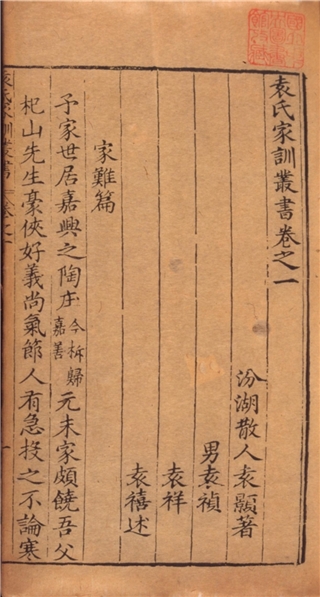 袁氏家訓叢書卷之一
汾湖散人袁顥著
男袁禎
袁祥
袁禧述
家難篇
予家世居嘉興之陶庄今柝歸嘉善元末家頗饒吾父
杞山先生豪俠好義尚氣節人有急投之不論寒
袁氏家訓叢書 卷之一 一